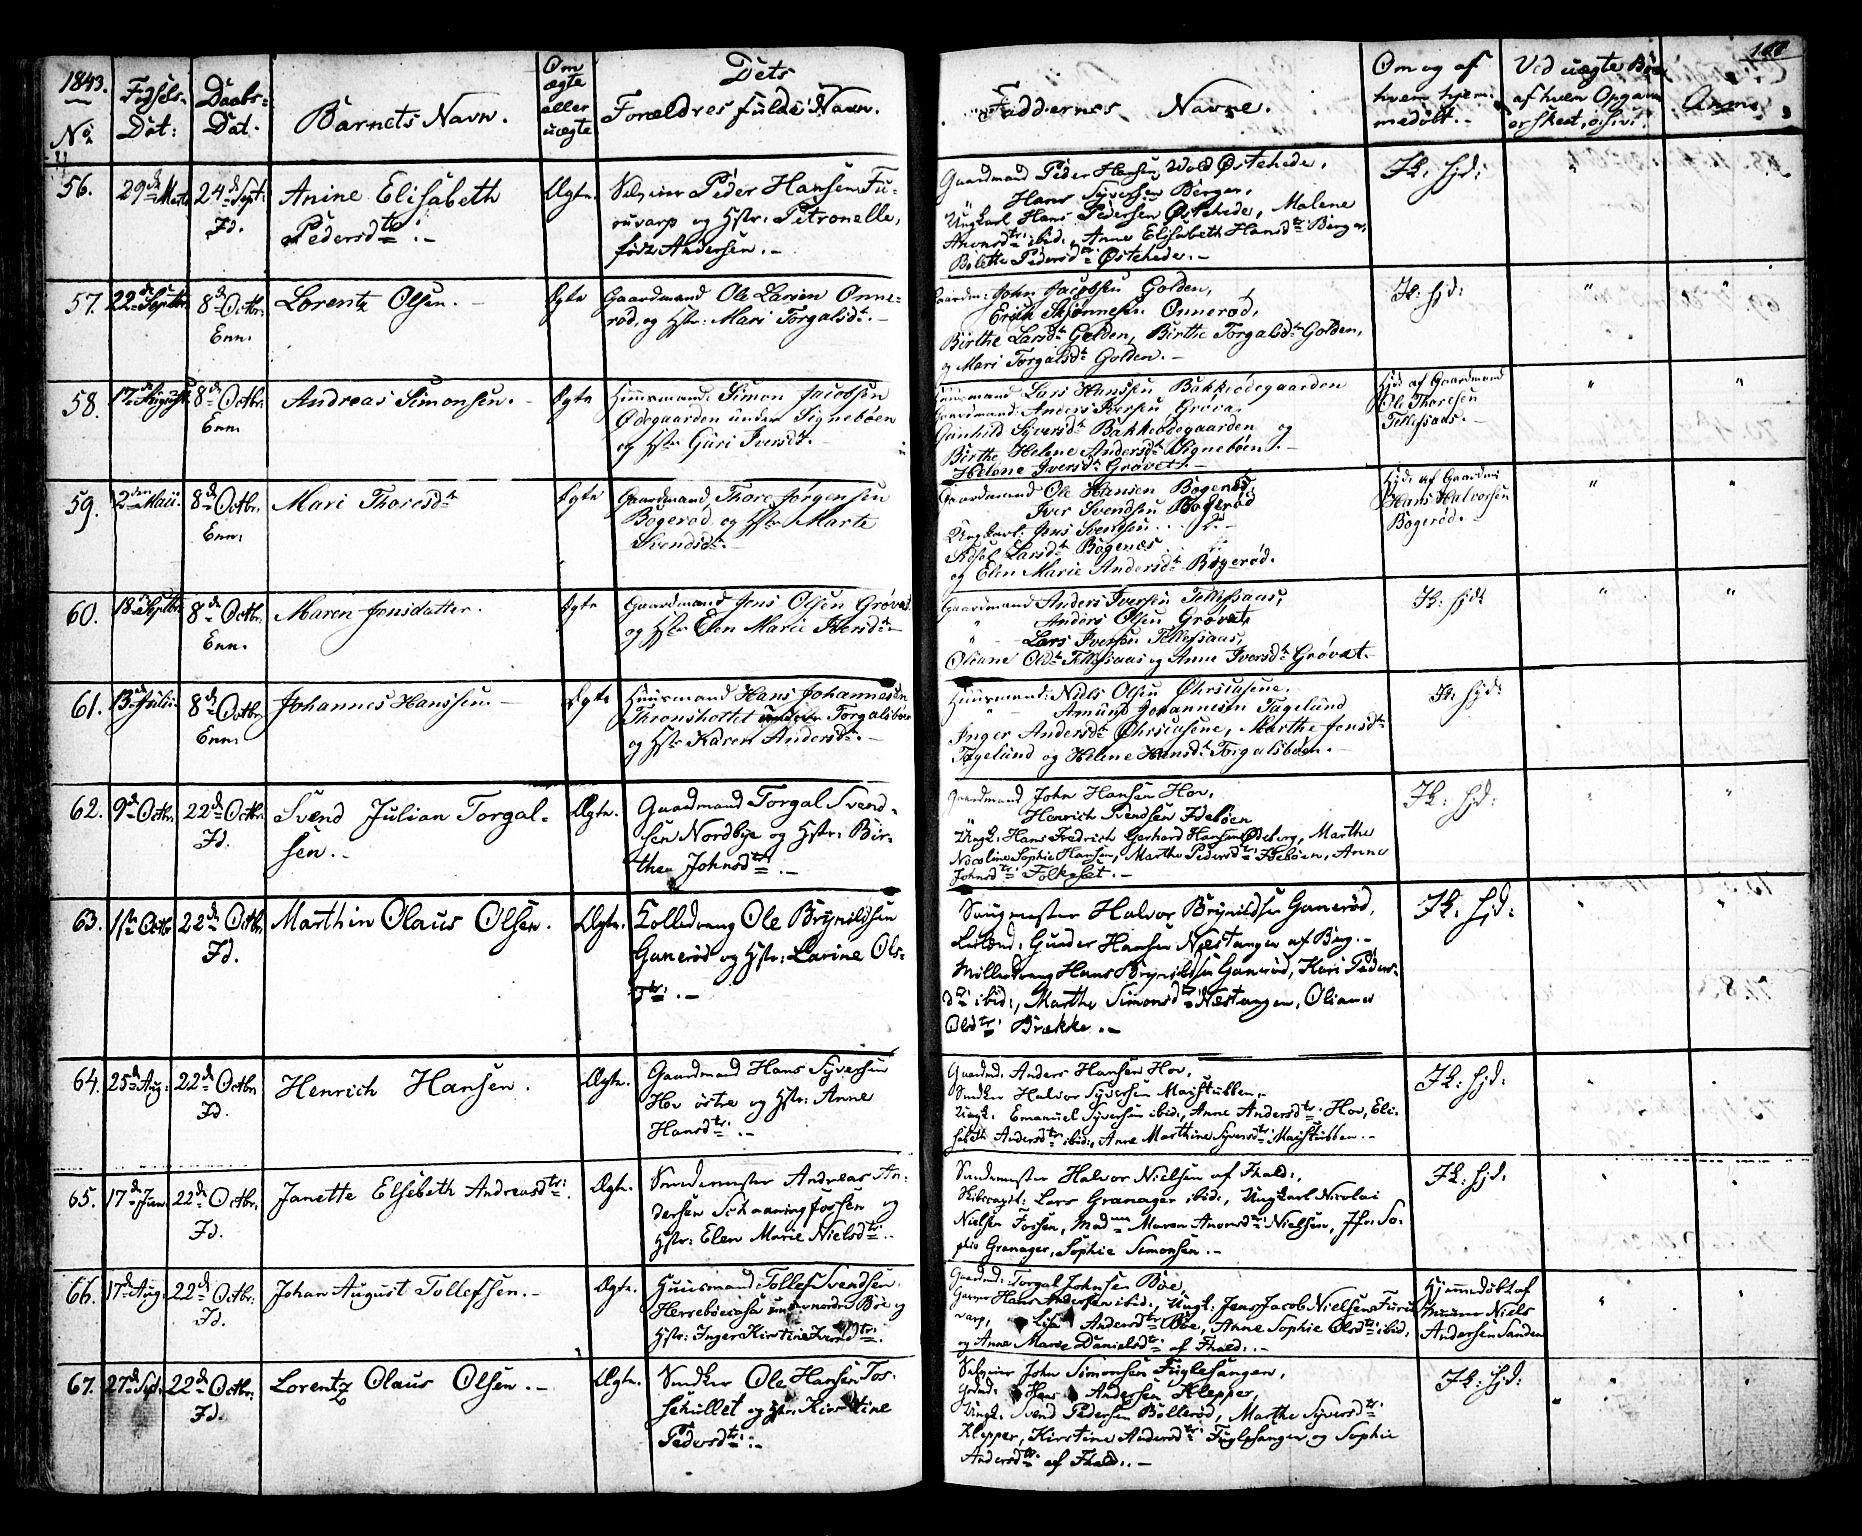 1843.
No
Fødsels-
Dat:
Daabs-
Dat.
Barnets Navn.
Om
ægte
eller
uægte
Dets
Forældres fulde Navn.
Faddernes Navne.
Om og af
hvem hjem-
medøbt.-
Ved uægte Børn
af hvem Opgaven
er skeet, o.s.v.
Anm.
56.
29de Marts
24de Sept:
Id.
Anine Elisabeth
Pedersdtr: .-
Ægte.
Peder Hansen Fu-
ruvarp og Hstr: Petronelle,
født Andersen. -
Gaardmand Peder Hansen Wold Østehede,
" Hans Syversen Berger,
Ungkarl Hans Pedersen Østehede, Malene
ibid., Anne Elisabeth Hansdtr: Berger,
Bolette Pedersdtr: Østehede. -
Ik. hjd:
"
57.
22de Septbr.
8de Octbr.
Enn.
Lorentz Olsen. -
Ægte
Gaardmand Ole Larsen Onne-
rød, og Hstr: Mari Torgalsdt. -
Gaardm: John Jacobsen Golden,
Erich Onnerød,
Birthe Larsdt Golden, Birthe Torgalsdt Golden,
og Mari Torgalsdt Golden. -
Ik: hjd:
"
"
58.
17de August
8de Octbr.
Enn.
Andreas Simonsen. -
Ægte
Huusmand Simon Jacobsen
under Signebøen
og Hstr Guri Iversdt. -
Huusmand Lars Hanssen Bakkeødegaarden
Gaardmand: Anders Iversen Grøva,
Gunhild Syversdt Bakkeødegaarden og
Birthe Helene Andersdt Signebøen. -
Helene Iversdt Grøvet. -
Hjd af Gaardmand
Ole Thoresen
Tellefsaas. -
"
"
59.
2den Maii.
8de Octbr.
Enn.
Mari Thoresdt
Ægte
Gaardmand Thore Jørgensen
Bøgerød og Hstr Marte
Svendsdt. -
Gaardmand Ole Hansen Bøgenæs,
Iver Svendsen Bøgerød
Ungkarl: Jens Svendsen . . . -
Larsdt Bøgenæs
og Elen Marie Andersdt Bøgerød.
Hjd: af Gaardm:
Hans Halvorsen
Bøgerød. -
"
"
60.
18de Septbr.
8de Octbr.
Enn.
Maren Jensdatter.
Ægte
Gaardmand Jens Olsen Grøvet
og Hstr Elen Marie Iversdt. -
Gaardmand Anders Iversen Tellefsaas,
" Anders Olsen Grøvet,
" Lars Iversen Tellefsaas,
Oliane Olsdt Tellefsaas og Anne Iversdt Grøvet. -
Ik: hjd:
"
"
61.
13de Julii.
8de Octbr.
Enn.
Johannes Hanssen. -
Ægte
Huusmand Hans Johannesen
Thronshottet under Torgalsbøen
og Hstr Karen Andersdt. -
Huusmand: Niels Olsen
" Amund Johannesen Tagelund
Inger Andersdt Marthe Jensdt
Tagelund og Helene Hansdt Torgalsbøen. -
Ik: hjd:
62.
9de Octbr.
22de Octbr.
Id.
Svend Julian Torgal-
sen. -
Ægte.
Gaardmand Torgal Svend-
sen Nordbye og Hstr: Bir-
the Johnsdtr: . -
Gaardmand John Hansen Hov,
" Henrich Svendsen Idebøen
Ungk: Hans Fredrich Gerhard Hansen Ødeberg, Marthe
Nicoline Sophie Hansen, Marthe Pedersdtr: Idebøen, Anne
Johnsdtr: Folkeset. -
Ik: hjd:
"
63.
1ste Octbr.
22de Octbr.
Id.
Marthin Olaus Olsen.
Ægte.
Ole Brynildsen
Ganerød og Hstr: Larine Ols-
dtr: . -
Saugmester Halvor Brynildsen Ganerød,
Gunder Hansen Næstangen af Berg. -
Hans Brynildsen Ganerød, Kari Peders-
dtr: ibid:, Marthe Simonsdtr: Næstangen, Oliane
Olsdtr: Brække. -
Ik: hjd:
"
"
64.
25de Aug:
22de Octbr.
Id.
Henrich Hansen.
Ægte.
Gaardmand Hans Syversen
Hov østre og Hstr: Anne
Hansdtr: . -
Gaardmd: Anders Hansen Hov,
Snedker Halvor Syversen Maistubben,
Ungk: Emanuel Syversen ibid:, Anne Andersdtr: Hov, Eli-
sabeth Andersdtr: ibid:, Anne Marthine Syversdtr: Maistubben. -
Ik: hjd:
65.
17de Jan.
22de Octbr.
Id.
Janette Elsebeth Andreasdtr:
Ægte.
Smedemester Andreas An-
dersen Schaaning Fossen og
Hstr: Elen Marie Nielsdtr: . -
Halvor Nielsen af Fhald:,
Skibscapt: Lars Granager ibid:, Ungkarl Nicolai
Nielsen Fossen, Madme Maren Nielsen, Jfr: So-
phie Granager, Sophie Simonsen. -
Ik: hjd:
66.
17de Aug.
22de Octbr.
Id.
Johan August Tollefsen. -
Ægte.
Huusmand Tollef Svendsen
under nordre Bøe og
Hstr: Inger Kirstine
Gaardmd: Torgal Johnsen Bøe,
Hans Andersen ibid:, Ungk: Jens Jacob Nielsen Furu
varp, Andersdtr: Bøe, Anne Sophie Olsdtr: ibid,
og Anne Marie Danielsdtr: af Fhald: . -
Hjemmedøbt af
Niels
Andersen Sanden
"
67.
27de Spt:
22de Octbr.
Id.
Lorentz Olaus Olsen. -
Ægte.
Snedker Ole Hansen Tos-
sehullet og Hstr: Kirstine
Pedersdtr: . -
John Simonsen Fuglesangen,
Hans Andersen Klepper,
Ungk: Svend Pedersen Bøllerød, Marthe Syversdtr:
Klepper, Kirstine Andersdtr: Fuglesangen og Sophie
Andersdtr: af Fhald: . -
Ik: hjd:
"